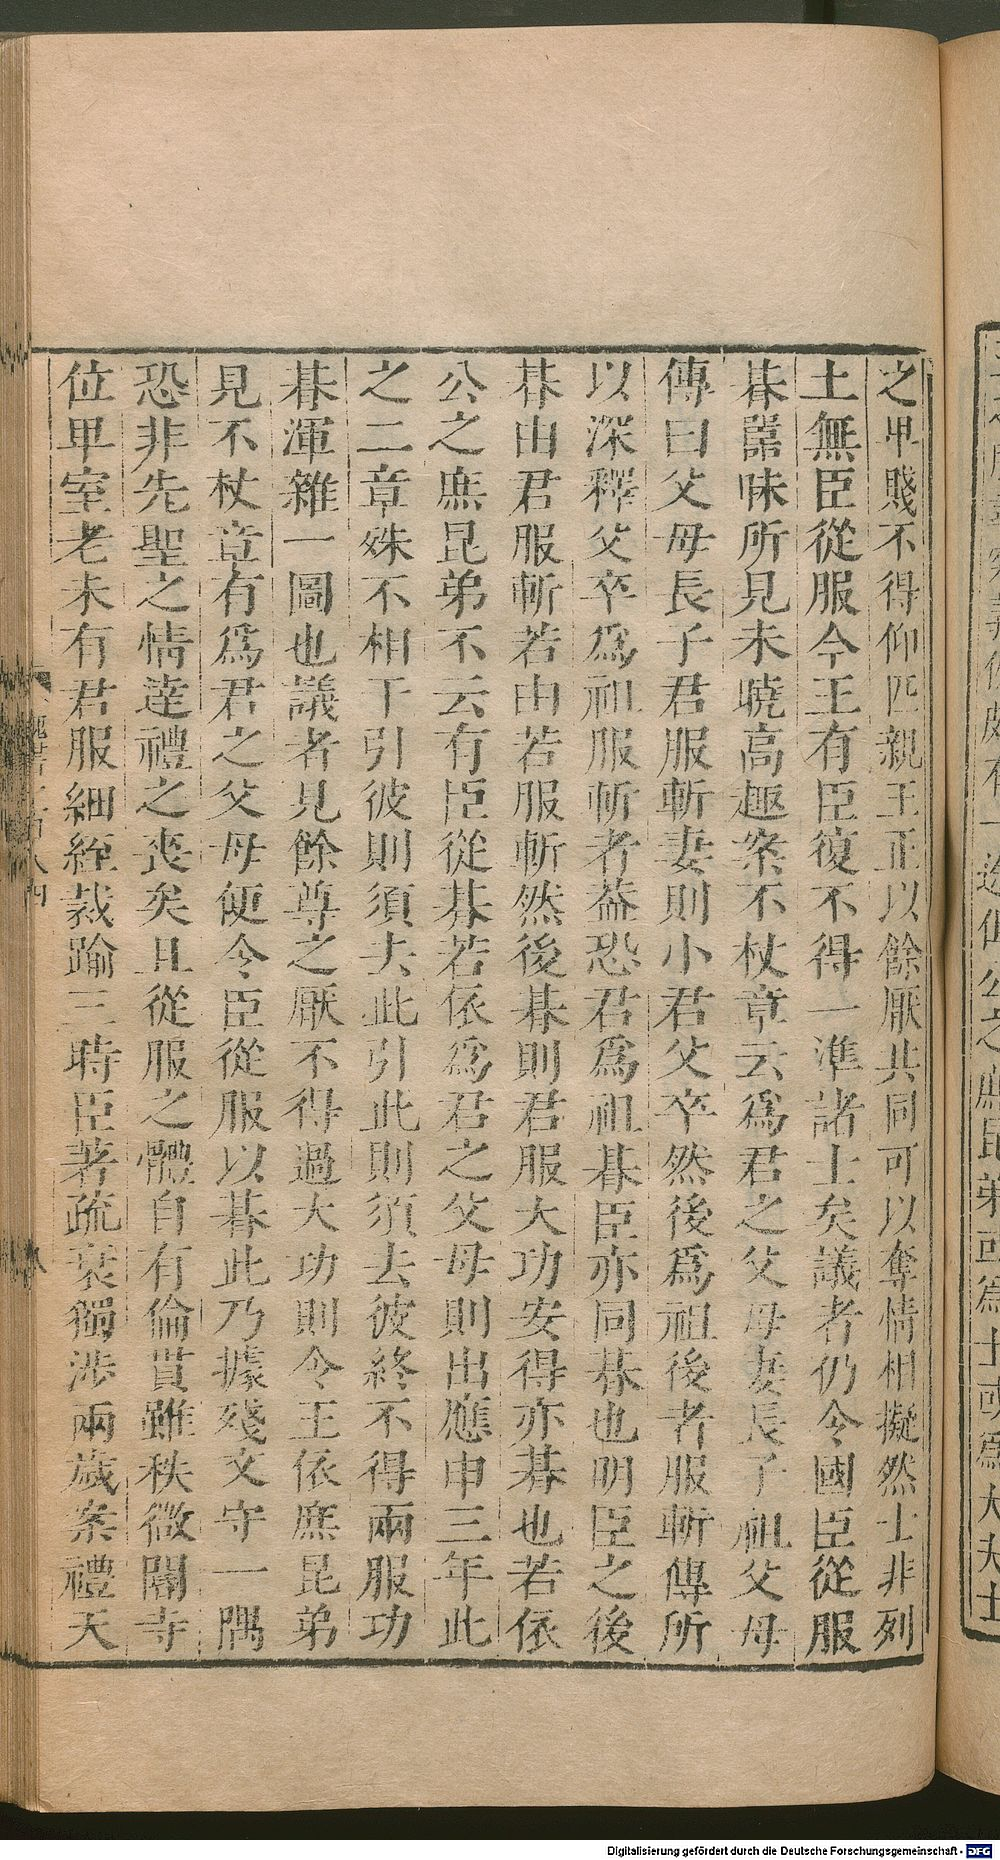 之卑賤不得仰匹親王正以餘厭共同可以奪情相擬然士非列
土無臣從服今王有臣復不得一準諸士矣議者仍令國臣從服
朞嘂昧所見未曉高趣案不杖章云爲君之父母妻長子祖父母
傳曰父母長子君服斬妻則小君父卒然後爲祖後者服斬傳所
以深釋父卒爲祖服斬者葢恐君爲祖朞臣亦同朞也明臣之後
朞由君服斬若由若服斬然後朞則君服大功安得亦朞也若依
公之庶昆弟不云有臣從朞若依爲君之父母則出應申三年此
之二章殊不相干引彼則須去此引此則須去彼終不得兩服功
朞渾雜一圖也議者見餘尊之厭不得過大功則令王依庶昆弟
見不杖章有爲君之父母便令臣從服以朞此乃據殘文守一隅
恐非先聖之情逹禮之喪矣且從服之體自有倫貫雖秩微閽寺
位卑室老未有君服細絰裁踰三時臣著疏衰獨涉兩歲案禮天
Digitalisierung gefördert durch die Deutsche Forschungsgemeinschaft - DFG